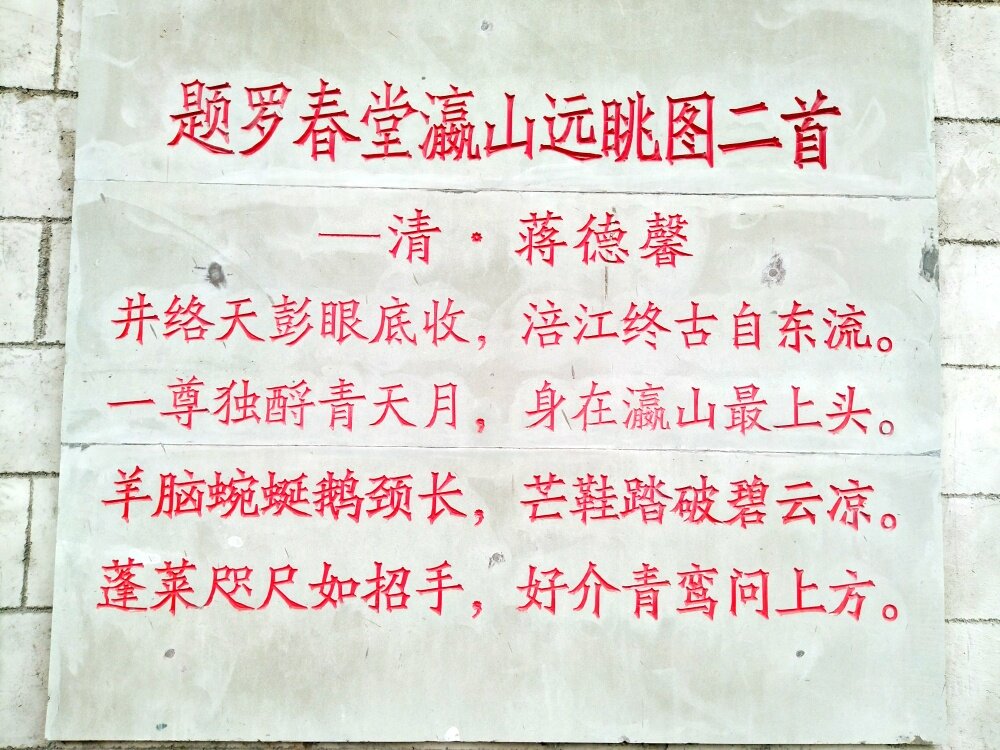 题罗春堂瀛山远眺图二首
—清·蒋德馨
井络天彭眼底收，涪江终古自东流。
一尊独酹青天月，身在瀛山最上头。
羊脑蜿蜒鹅颈长，芒鞋踏破碧云凉。
蓬莱咫尺如招手，好介青鸾问上方。